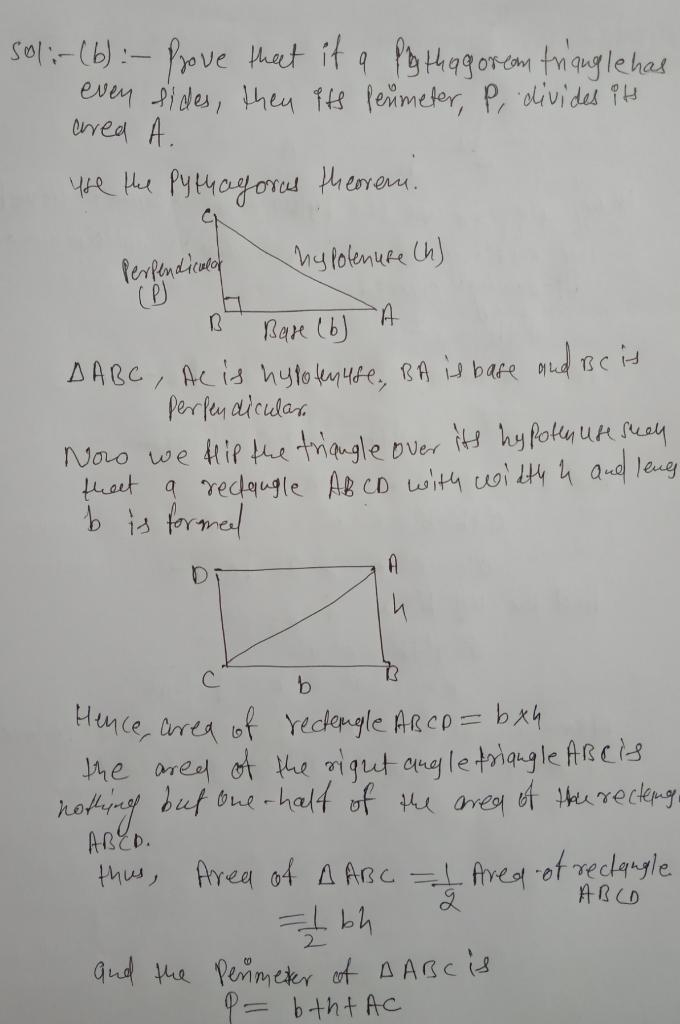 Sol:-(b):- Prove that if a Pythagorean triangle has
even sides, then its Perimeter, P, divides its
area A.
use the Pythagorus theorem.
C
Perpendicular
(P)
hypotenuse (h)
B
Base (b)
A
ΔABC, AC is hypotenuse, BA is base and BC is
perpendicular.
Now we flip the triangle over its hypotenuse such
that a rectangle ABCD with width h and leng
b is formed
D
A
h
C
b
B
Hence, area of rectangle ABCD = b×h
the area of the right angle triangle ABC is
nothing but one-half of the area of the rectang
ABCD.
thus, Area of Δ ABC = 1/2 Area of rectangle
ABCD
= 1/2 bh
and the Perimeter of ΔABC is
P = b+h+AC